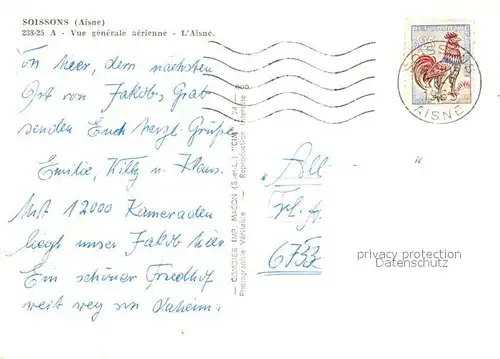 SOISSONS (Aisne)
238-25 A - Vue générale aérienne - L'Aisne.
Von hier, dem nächsten
Ort von Jakobs Grab
senden Euch herzl. Grüße
Emilie, Willy u. Klaus.
Mit 12000 Kameraden
liegt unser Jakob hier
Ein schöner Friedhof
weit weg von daheim.
COMBIER IMP. MACON (S.-&-L.)
Photographie Véritable - Reproduction Interdite
AISNE
6733
privacy protection
Datenschutz